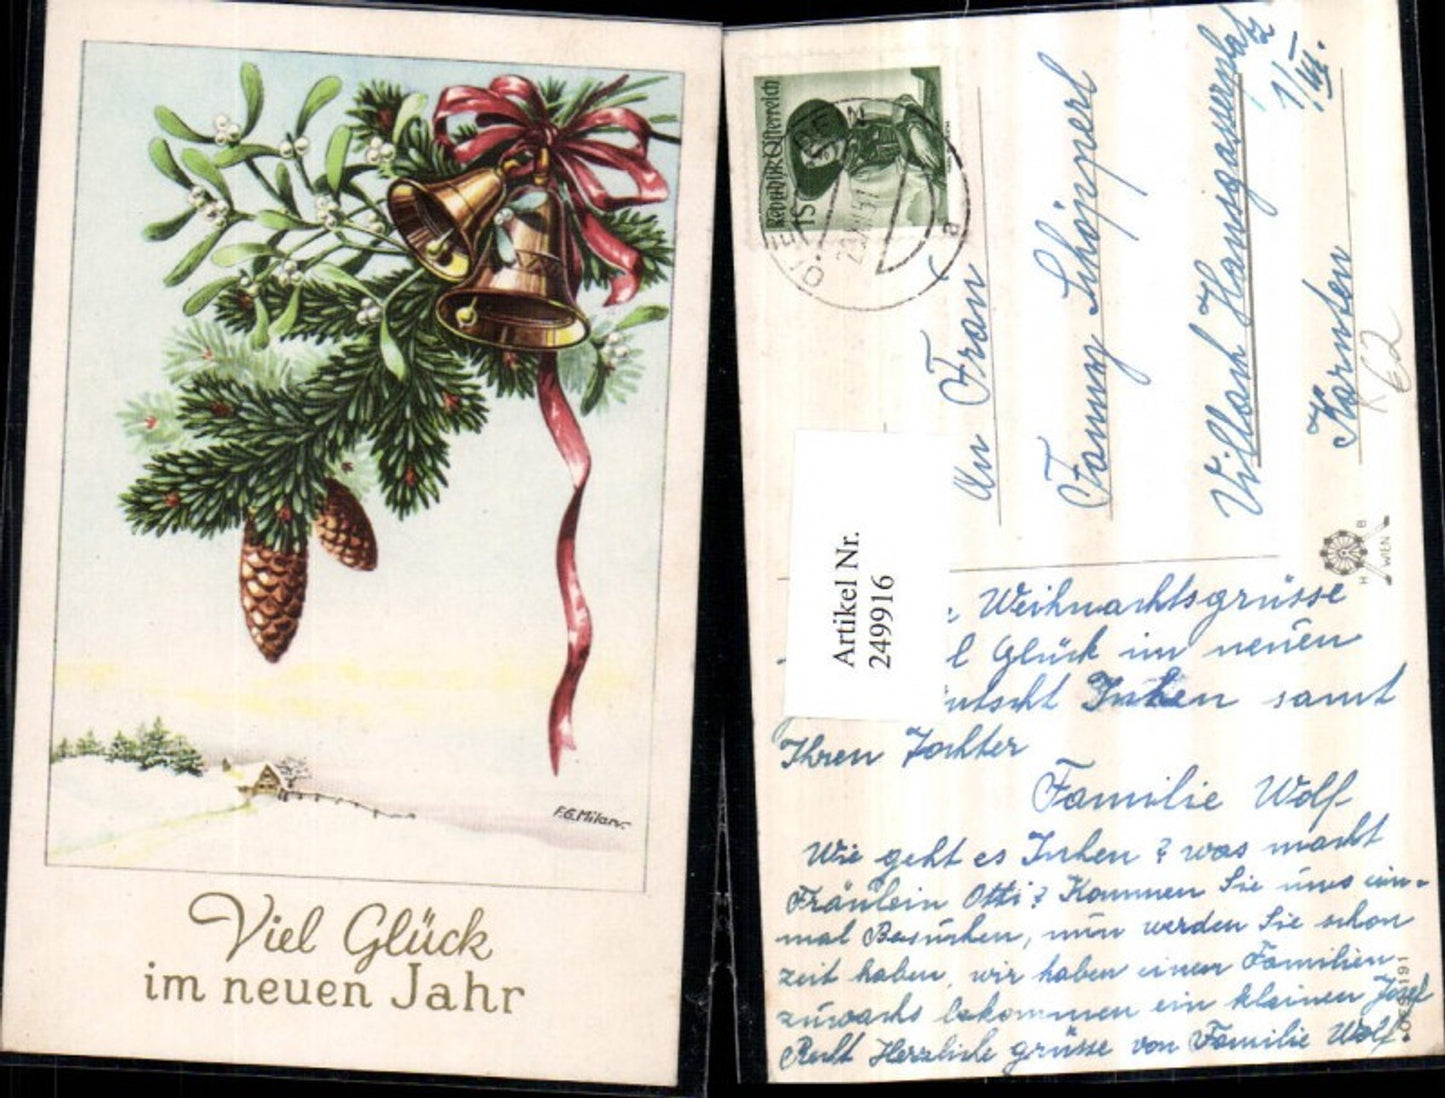 Viel Glück
im neuen Jahr
F.G. Milan.
Republik Österreich
An Frau
Fanny Schöpperl
Villach Hansgasserplatz
1/III.
Kärnten
62
Artikel Nr.
249916
H B
WIEN
Weihnachtsgrüsse
l Glück im neuen
üntscht Inhen samt
Ihren Tochter
Familie Wolf
Wie geht es Inhen? was macht
Fräulein Otti? Kommen Sie uns ein-
mal Besuchen, nun werden Sie schon
zeit haben, wir haben einen Familien
zuwachs bekommen ein kleinen Josef
Recht Herzliche grüsse von Familie Wolf.